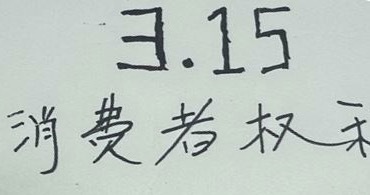 3.15
消费者权